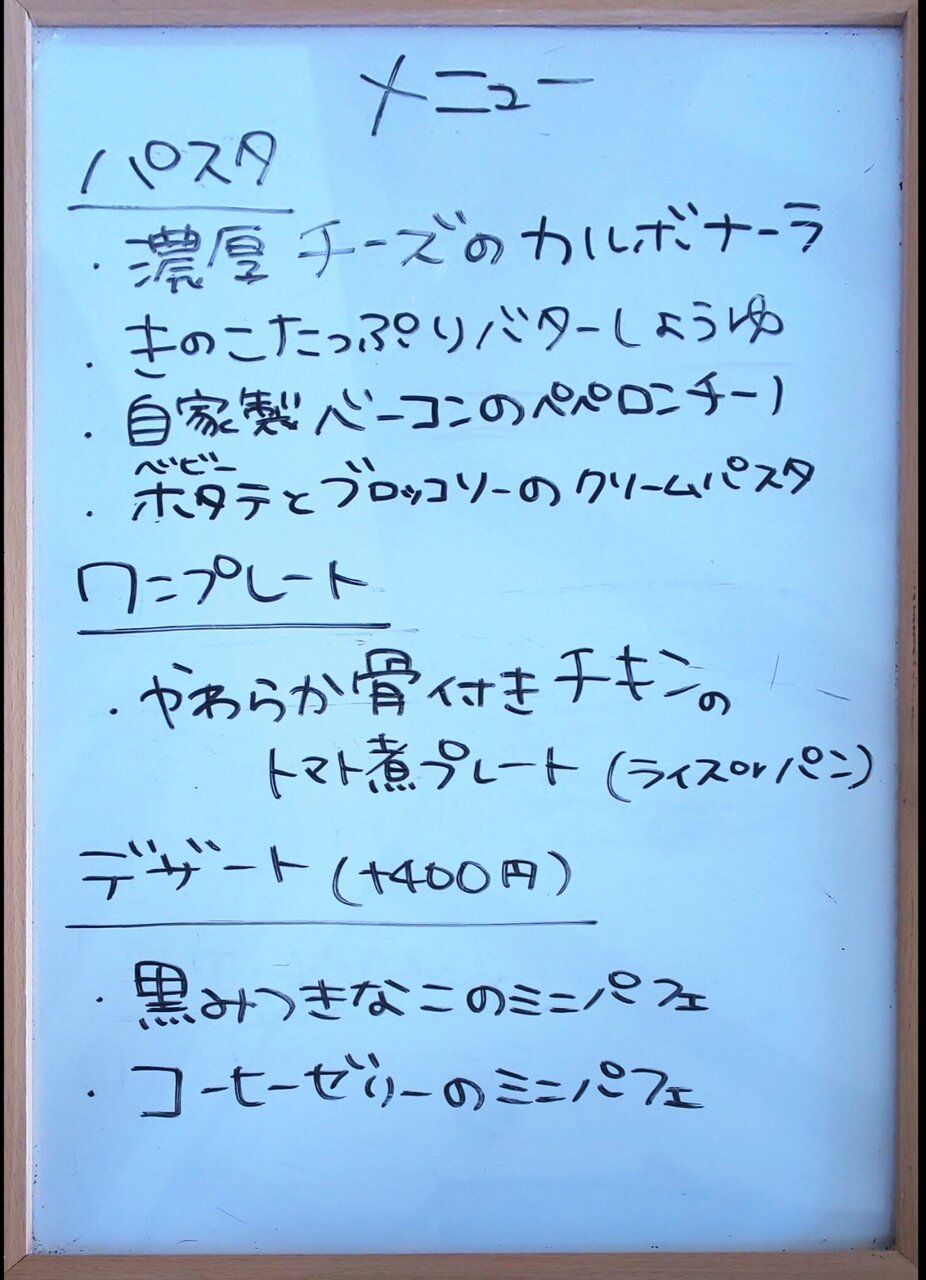 メニュー
パスタ
・濃厚チーズのカルボナーラ
・きのこたっぷりバターしょうゆ
・自家製ベーコンのペペロンチーノ
ベビー
・ホタテとブロッコリーのクリームパスタ
ワンプレート
・やわらか骨付きチキンの
トマト煮プレート (ライスorパン)
デザート (+400円)
・黒みつきなこのミニパフェ
・コーヒーゼリーのミニパフェ